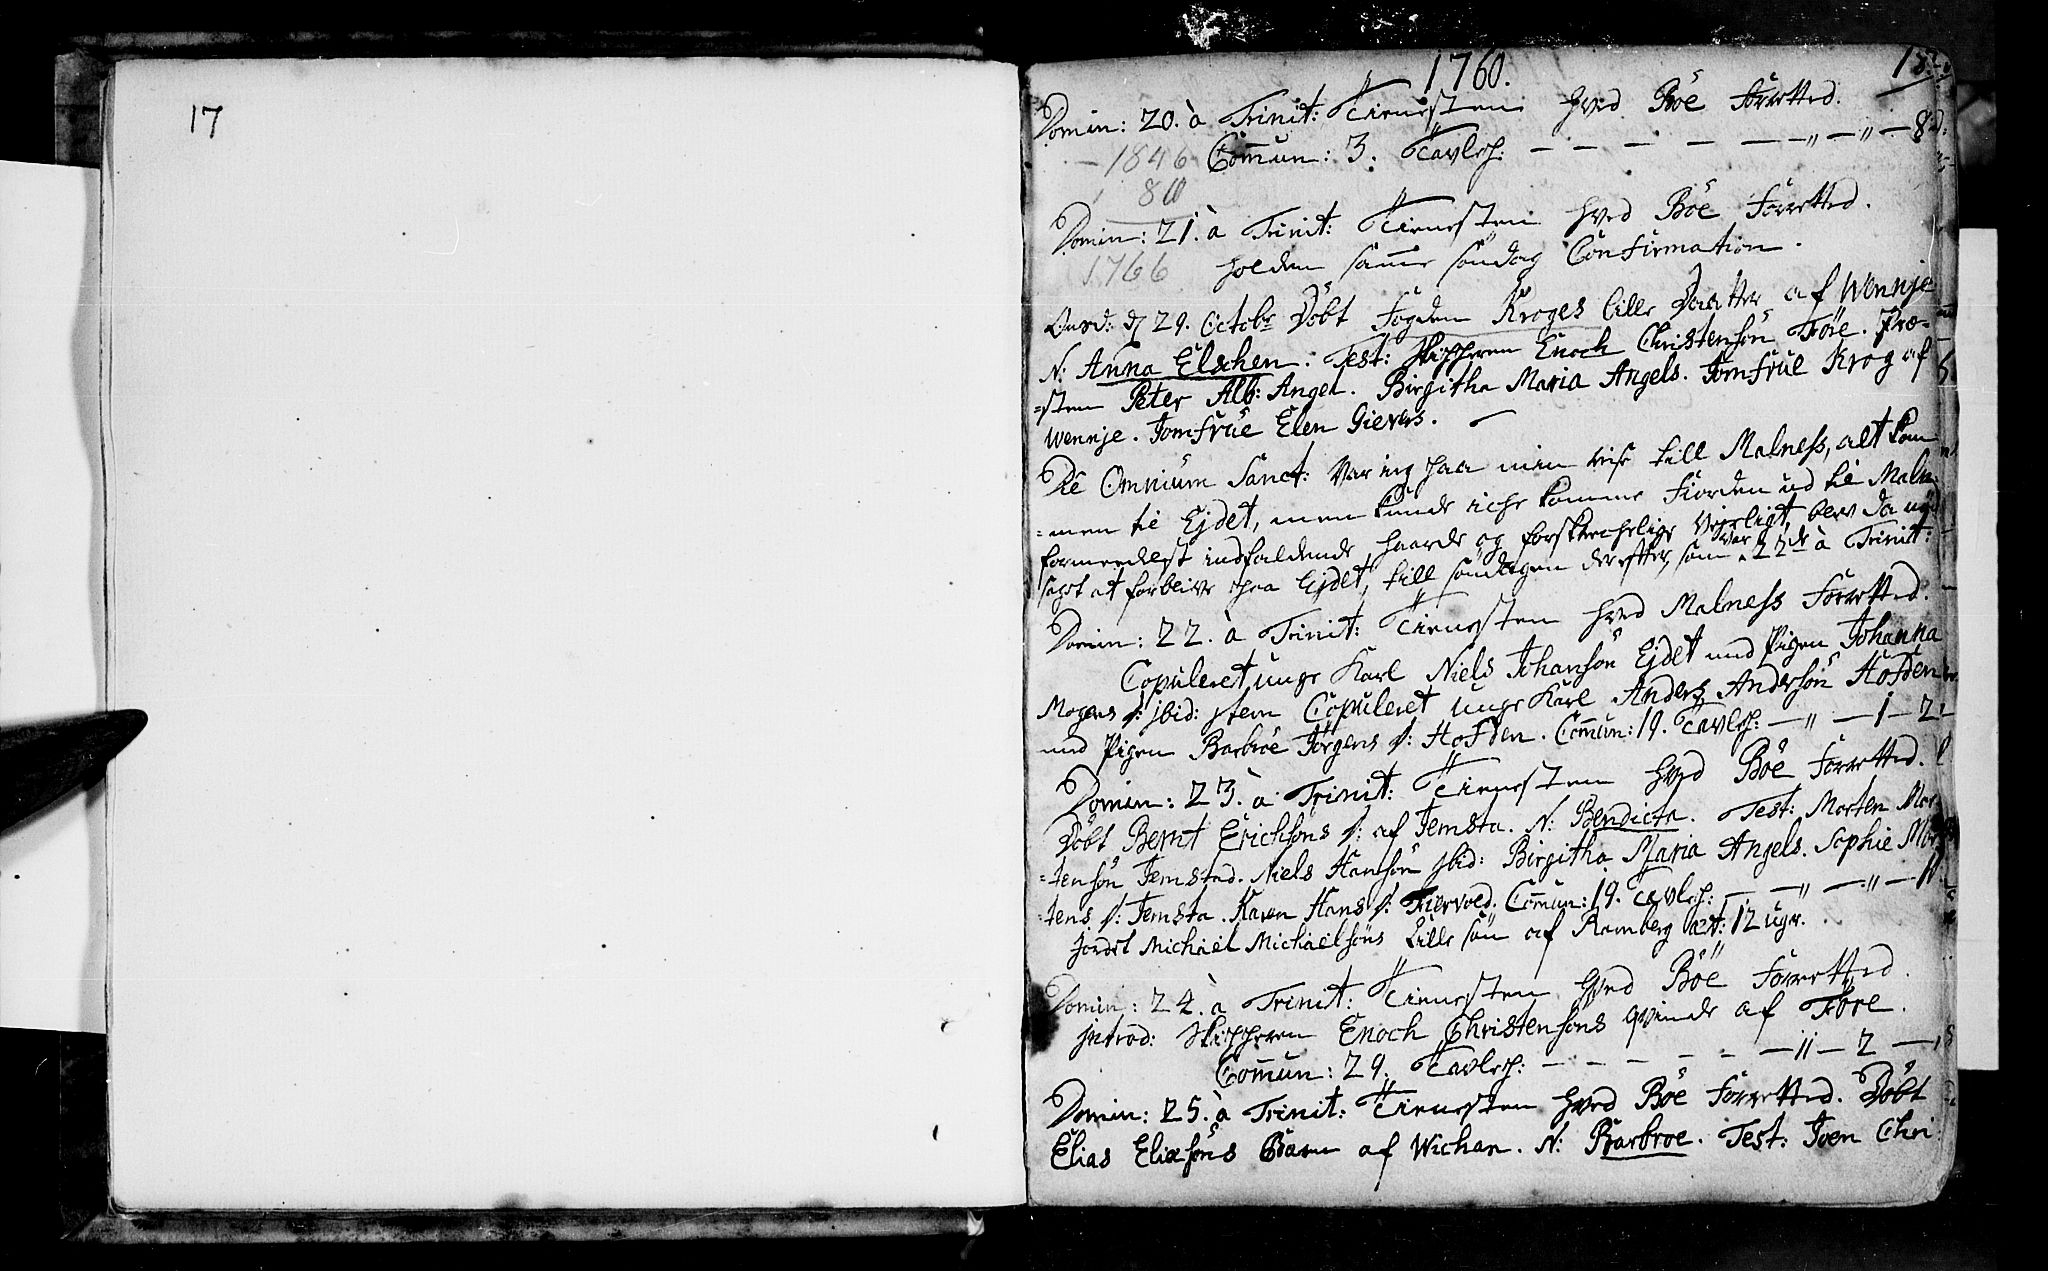 17
1760.
18
Domin: 20. à Trinit: Tienesten hved Böe forretted.
1846 Comun: 3. Tavlep: — — — — — „ — „ — 8
80
Domin: 21. à Trinit: Tienesten hved Böe forretted.
1766 holden samme söndag Confirmation.
Onsd: d 29. Octobr Döbt Fogden Kroges lille Daatter af Wennje
N: Anna Elschen. Test: Skipperen Enoch Christensön Före. Præ-
-sten Peter Alb: Angel. Birgitha Maria Angels. Jomfrue Krog af
Wennje. Jomfrüe Elen Gievers.
Die Omnium Sanct: Var ieg paa min reise till Malness, alt kom
-men til Ejdet, men kunde iche komme Fiorden ud til Maln.
formedelst indfaldende haarde og forskrechelige Vejrligt, blev da nöd
saget at forblive paa Ejdet, till söndagen derefter, som var 22de à Trinit:
Domin: 22. à Trinit: Tienesten hved Malness forretted.
Copuleret unge Karl Niels Johansön Ejdet med Pigen Johanna
Mogens d: ibid: item Copuleret unge Karl Anders Andersön Hofden
med Pigen Barbroe Jörgens d: Hofden. Comun: 19. Tavlep: — „ — 1 — 2
Domin: 23. à Trinit: Tienesten hved Böe forretted.
Döbt Bernt Erichsöns d: af Jemsta. N: Bendicta. Test: Morten Mor-
-tensön Jemstad. Niels Hansön ibid: Birgitha Maria Angels. Sophie Mor-
-tens d: Jemsta. Karen Hans d: Fiervold. Comun: 19. Tavlep: — — „ — „ — 10
Jordet Michael Michaelsöns lille sön af Ramberg æt: 12 uger.
Domin: 24. à Trinit: Tienesten hved Böe forretted.
Introd: Skipperen Enoch Christensöns qvinde af Före.
Comun: 29. Tavlep: — — — — — — „ — 2 —
Domin: 25. à Trinit: Tienesten hved Böe forretted. Döbt
Elias Eliæsöns Barn af Wichan. N: Barbroe. Test: Joen Chri: